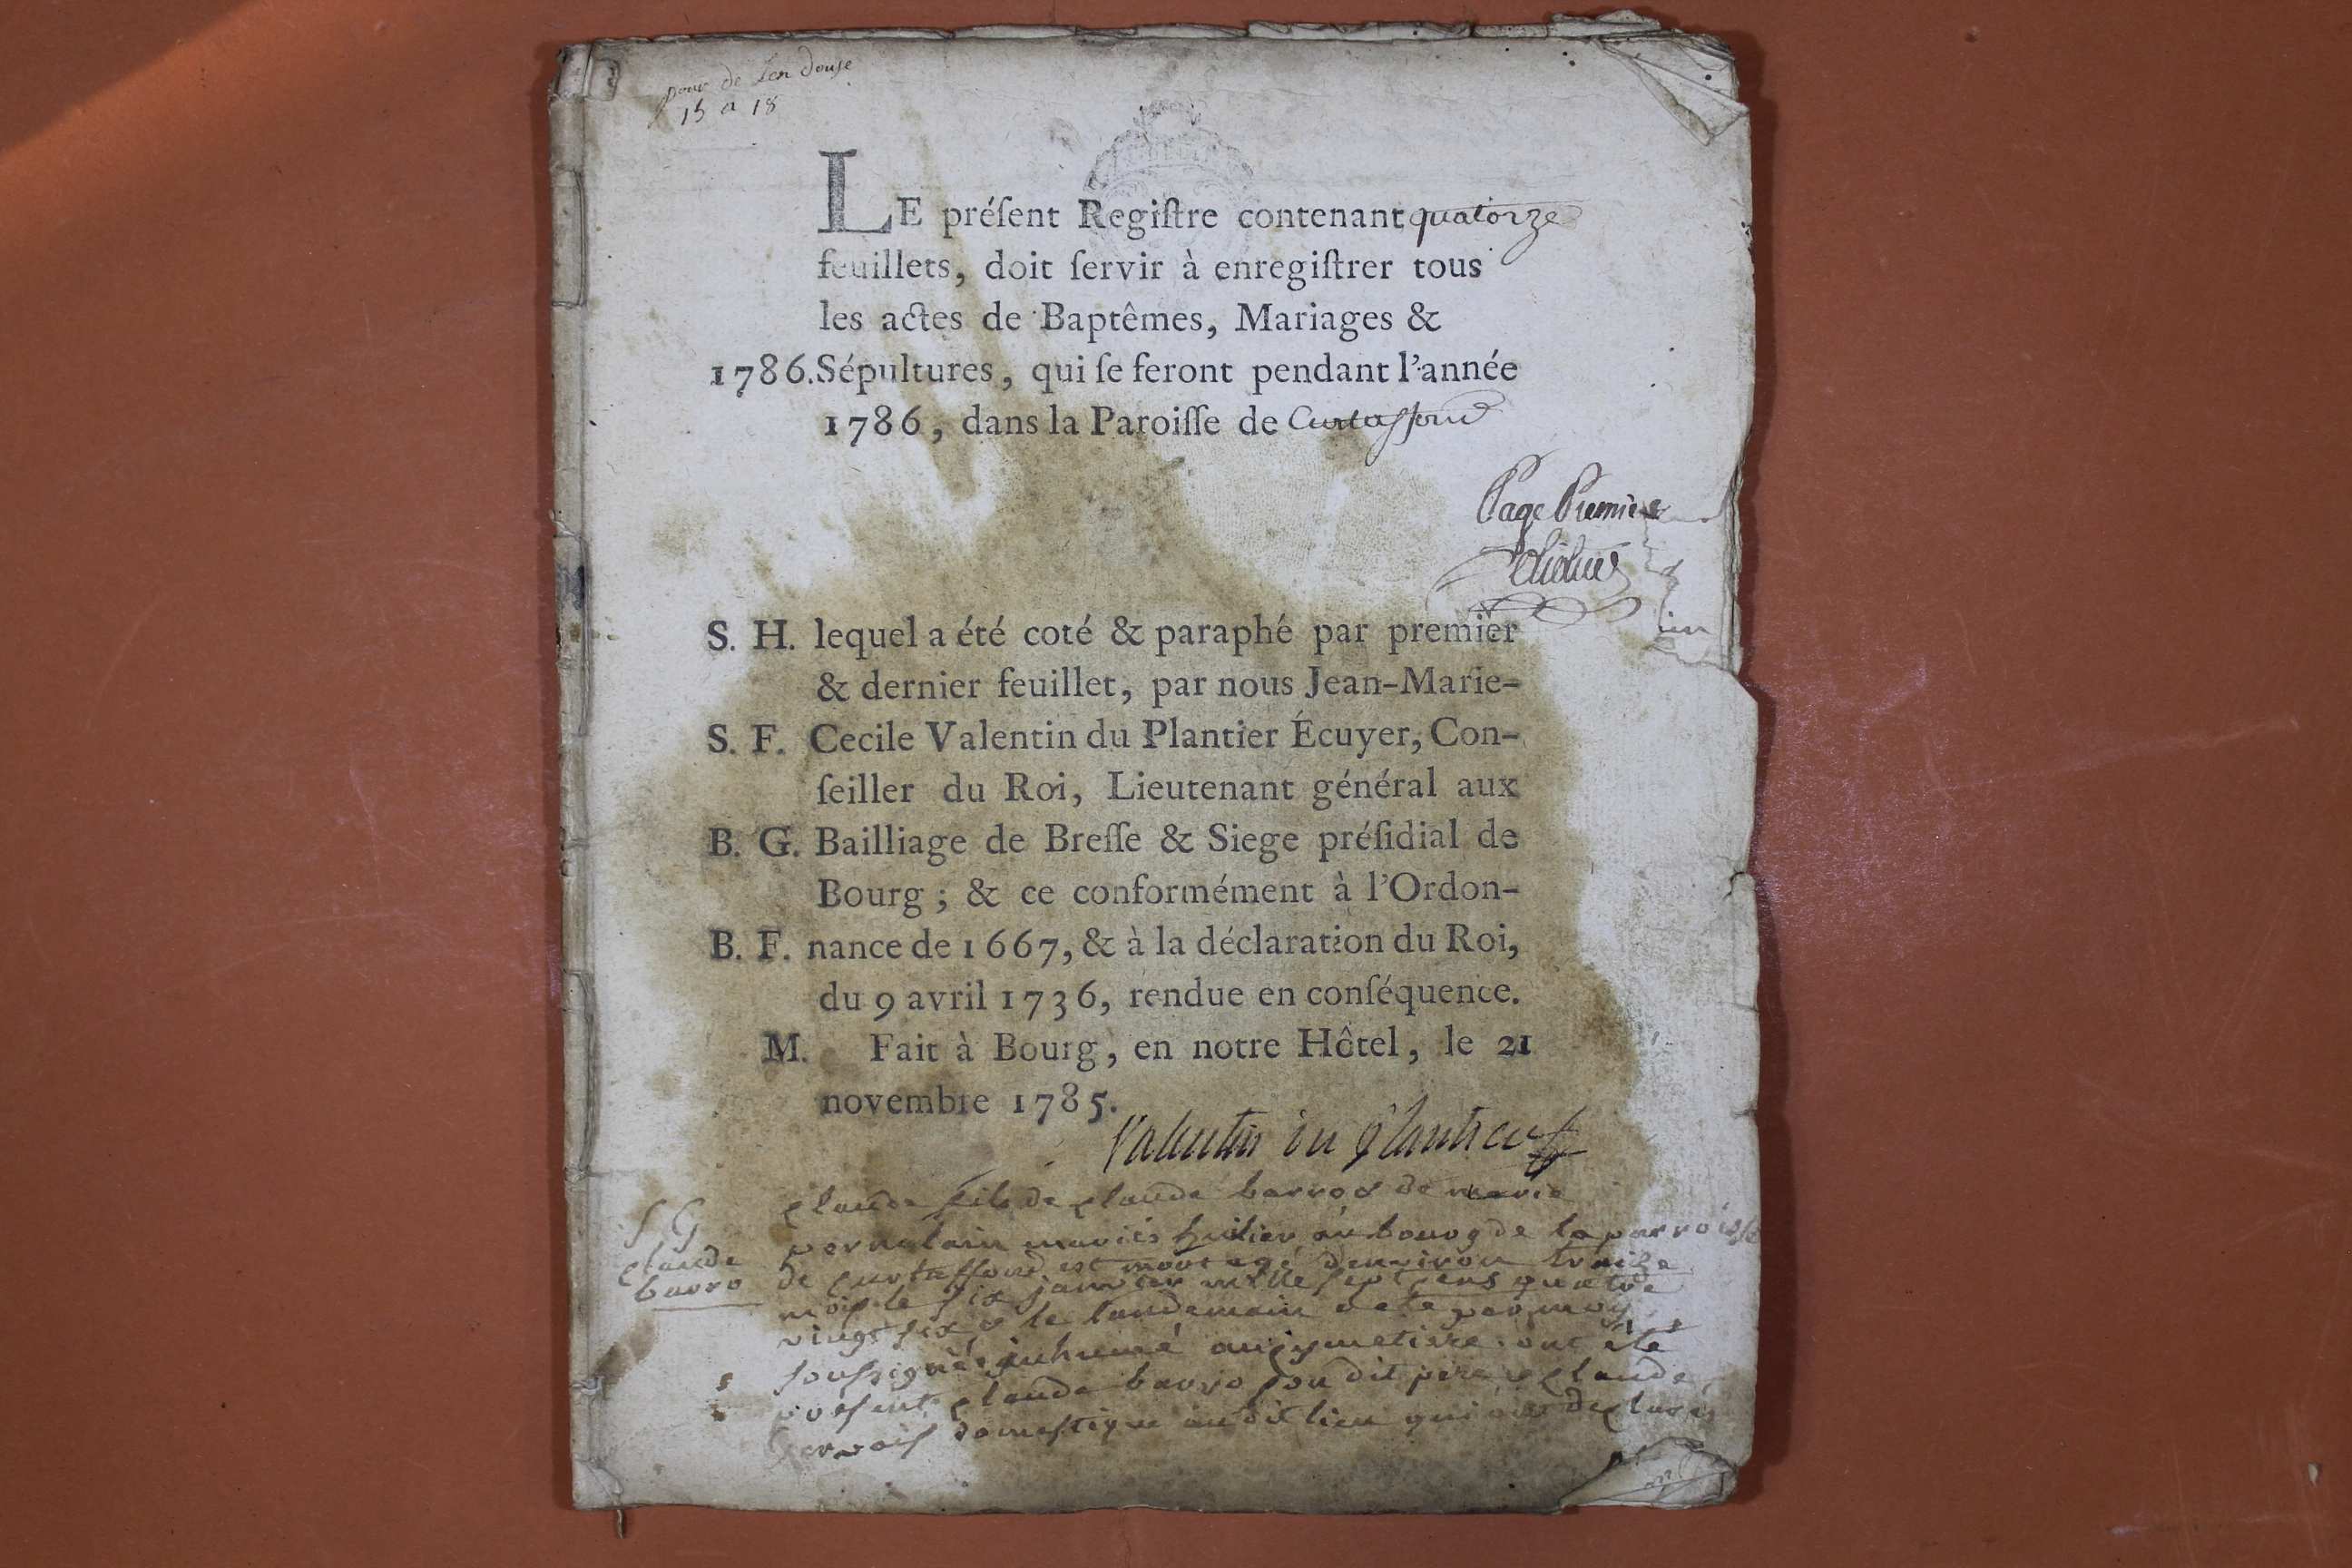 pour de Len douse
15 a 18
LE préſent Regiſtre contenant quatorze
feuillets, doit ſervir à enregiſtrer tous
les actes de Baptêmes, Mariages &
1786. Sépultures, qui ſe feront pendant l'année
1786, dans la Paroiſſe de Curtaffond
Page Premiere
S. H. lequel a été coté & paraphé par premier
& dernier feuillet, par nous Jean-Marie-
S. F. Cecile Valentin du Plantier Écuyer, Con-
ſeiller du Roi, Lieutenant général aux
B. G. Bailliage de Breſſe & Siege préſidial de
Bourg ; & ce conformément à l'Ordon-
B. F. nance de 1667, & à la déclaration du Roi,
du 9 avril 1736, rendue en conſéquence.
M. Fait à Bourg, en notre Hôtel, le 21
novembre 1785.
Valentin du Plantier
S G claude fils de claude barro & de marie
mariés au bourg de la parroisse
claude barro de curtaffond est mort agé denviron traize
mois le six janvier mille sept cens quatre
vingt six & le landemain a eté par moy
soussigné inhumé au cymetiere ont été
present claude barro son dit pere & claude
domestique audit lieu qui ont